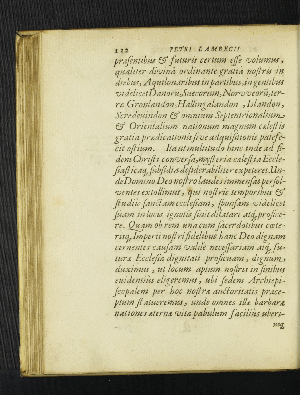 122 PETRI LAMBECII
præsentibus & futuris certum esse volumus,
qualiter divinâ ordinante gratiâ nostris in
diebus, Aquilonaribus in partibus, in gentibus
videlicet Danorũ, Sueonum, Norvveorũ, ter-
ræ Gronlandon, Hallinglandon, Islandon,
Scredevindon & omnium Septentrionalium
& Orientalium nationum magnum cælestis
gratia prædicationis sive adquisitionis patefe-
cit ostium. Ita ut multitudo hinc inde ad fi-
dem Christi conversa, mysteria cælestia Ecclesi-
æ subsidia desiderabiliter expeteret. Un-
de Domino Deo nostro laudes immensas persol-
ventes extollimus, qui nostris temporibus &
studiis sanctam ecclesiam, sponsam videlicet
suam in locis ignotis sinit dilatari atq; profice-
re. Quam ob rem una cum sacerdotibus cæte-
risq; Imperii nostri fidelibus hanc Deo dignam
cernentes causam valde necessariam atq; fu-
turæ Ecclesiæ dignitati proficuam, dignum
duximus, ut locum aptum nostris in finibus
evidentius eligeremus, ubi sedem Archiepi-
scopalem per hoc nostræ auctoritatis præce-
ptum statueremus, unde omnes illæ barbaræ
nationes æternæ vitæ pabulum facilius uberi-